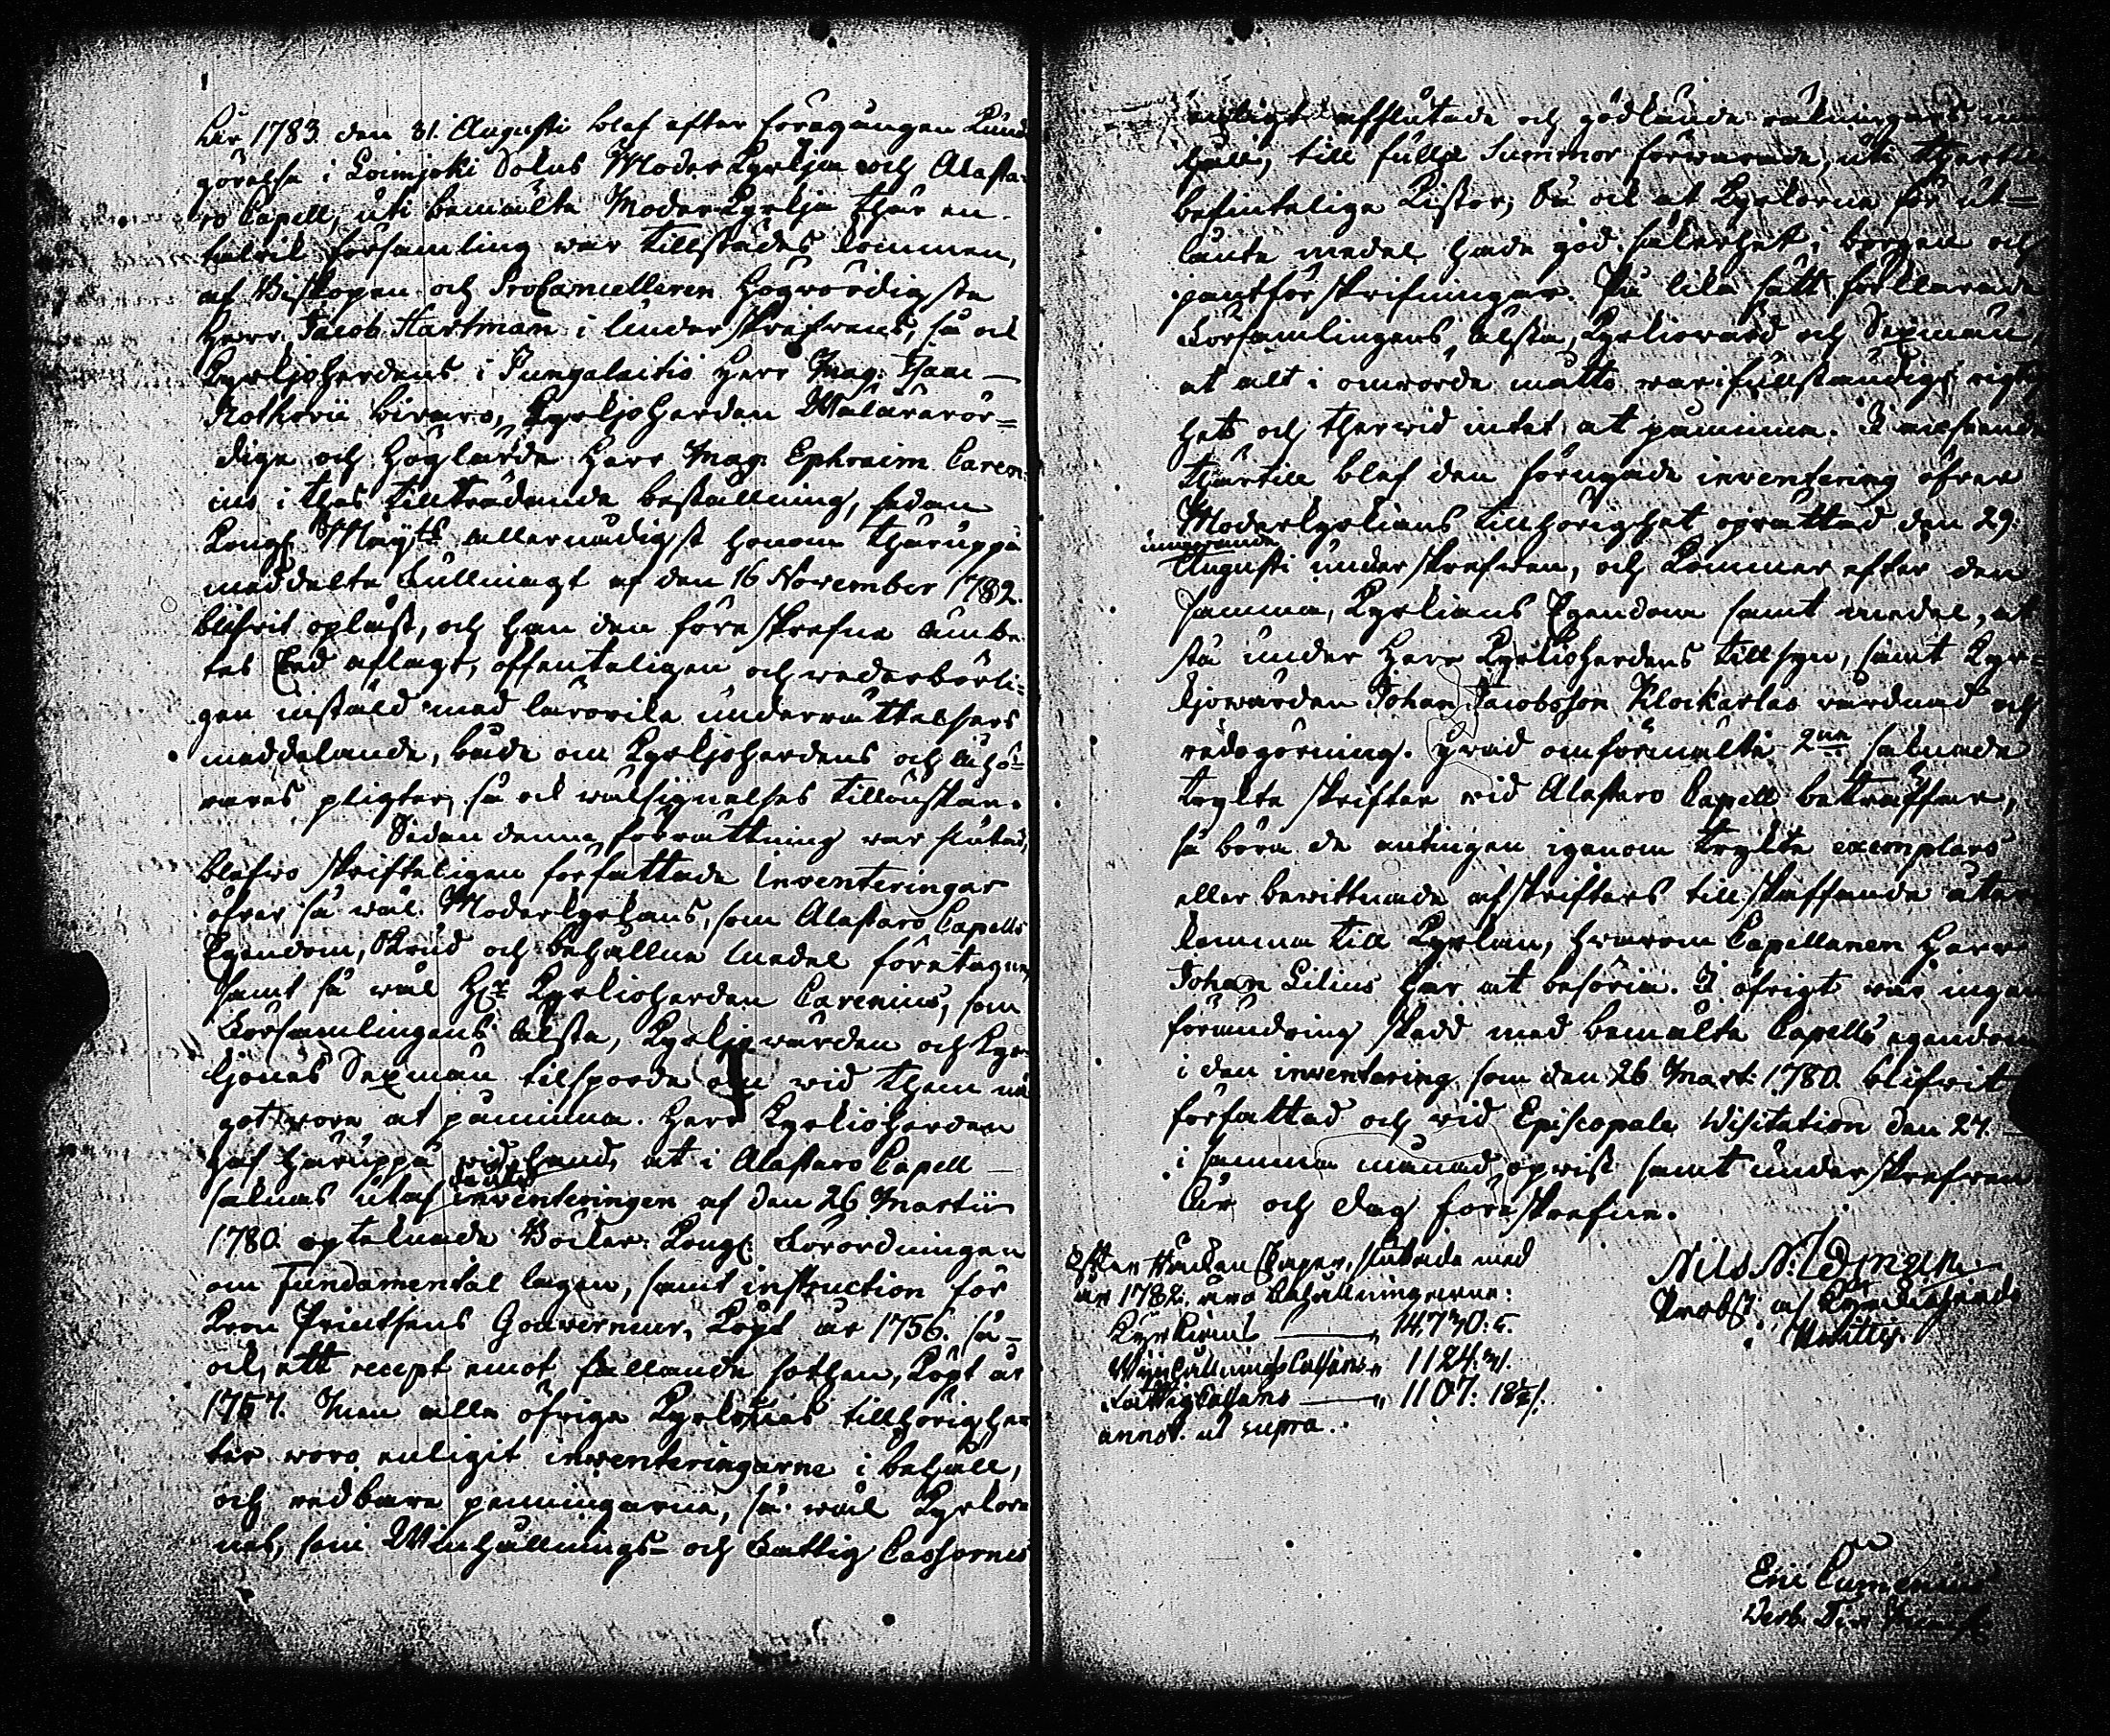 Åhr 1783 den 31. Augusti blef efter föregången Kund
görelse i Loimjoki Sokns Moder Kyrkja och Alasta-
ro Capell, uti bemälte Moderkyrkja ther en
talrik församling war tillstädes kommen,
af Biskopen och ProCancelleren Högwördigste
Herr Jacob Haartman i underskrefwens, så ock
Kyrkjoherdens i Pungalaitio Herr Mag.
Rothovii biwaro, Kyrkjoherden Wälärewör-
dige och Höglärde Herr Mag. Ephraim Caren-
ius i thes tillträdande beställning, sedan
Kongl. Maijts allernådigst honom theruppå
meddelte fullmagt af den 16 November 1782.
blifwit opläst, och han den föreskrefne ämbe
tes Ed aflagt, offenteligen och wederbörli-
gen instäld med lärorika underrättelsers
meddelande, både om Kyrkjoherdens och åhö-
rares pligter, så ock wälsignelses tillönskan.
Sedan denna förrättning war slutad,
blefwo skrifteligen författade Inventeringar
öfwer så wäl Moderkyrkans, som Alastaro Capells
Egendom, Skrud och behållne medel företagne,
samt så wäl Hr Kyrkioherden Carenius, som
Församlingens älste, Kyrkjowärden och Kyr-
kjones Sexmän tilsporde om wid them nå
got wore at påminna. Herr Kyrkioherden
gaf häruppå wid hand, at i Alastaro Capell
saknas utaf inventeringen af den 26 Martii
1780. optecknade Böcker: Kongl. Förordningen
om Fundamental lagen, samt instruction för
Kron Printsens Gouverneur, Kögt år 1756. så-
ock ett recept emot fallande sothen, Kögt år
1757. Men alla öfriga Kyrkornas tillhörighe
ter woro enligit inventeringarne i behåll,
och redbara penningarne, så wäl Kyrkor
nas, som Winhållnings- och Fattig Cassornes
enligt afslutade och godkände räkningars
håll, till fulla Summor förwarade, uti thertill
befintelige Kistor, Då ock at Kyrkorne för ut-
lånte medel hade god säkerhet i borgen och
pantförskrifningar. På lika sätt förklarade
Församlingens älste, Kyrkiowärd och Sexmän,
at alt i omrörde måtto war i fullständig rigtig
het och therwid intet at påminna. I anseende
thärtill blef den förnyade inventering öfwer
Moderkyrkians tillhörighet oprättad den 29.
innewarande
Augusti underskrefwen, och kommer efter den
samma, Kyrkians Egendom samt medel, at
stå under Herr Kyrkioherdens tillsyn, samt Kyr-
kjowärden Johan Jacobsson Klockarlas wårdnad och
redogörning. Hwad omförmälte 2ne saknade
trykte skrifter wid Alastaro Capell beträffar,
så böra de antingen igenom trykte exemplars
eller bewittnade afskrifters tillskaffande åter
komma till Kyrkan, hwarom Capellanen Herr
Johan Lilius har at besörja. I öfrigt war ingen
förändring skedd med bemälte Capells egendom
i den inventering som den 26 Mart. 1780. blifwit
författad och wid Episcopale Visitation den 27.
i samma månad opwist samt underskrefwen
År och dag föreskrefne.
Nils Idman
Probst och Kyrkioherde
Efter slutade med
år 1782. äro behållningarne:
Kyrkians — 14,730: 5.
WijnhållningsCassans 1124:
FattigCassans — 1107: 18
annot. ut supra.
Eric Cumenius